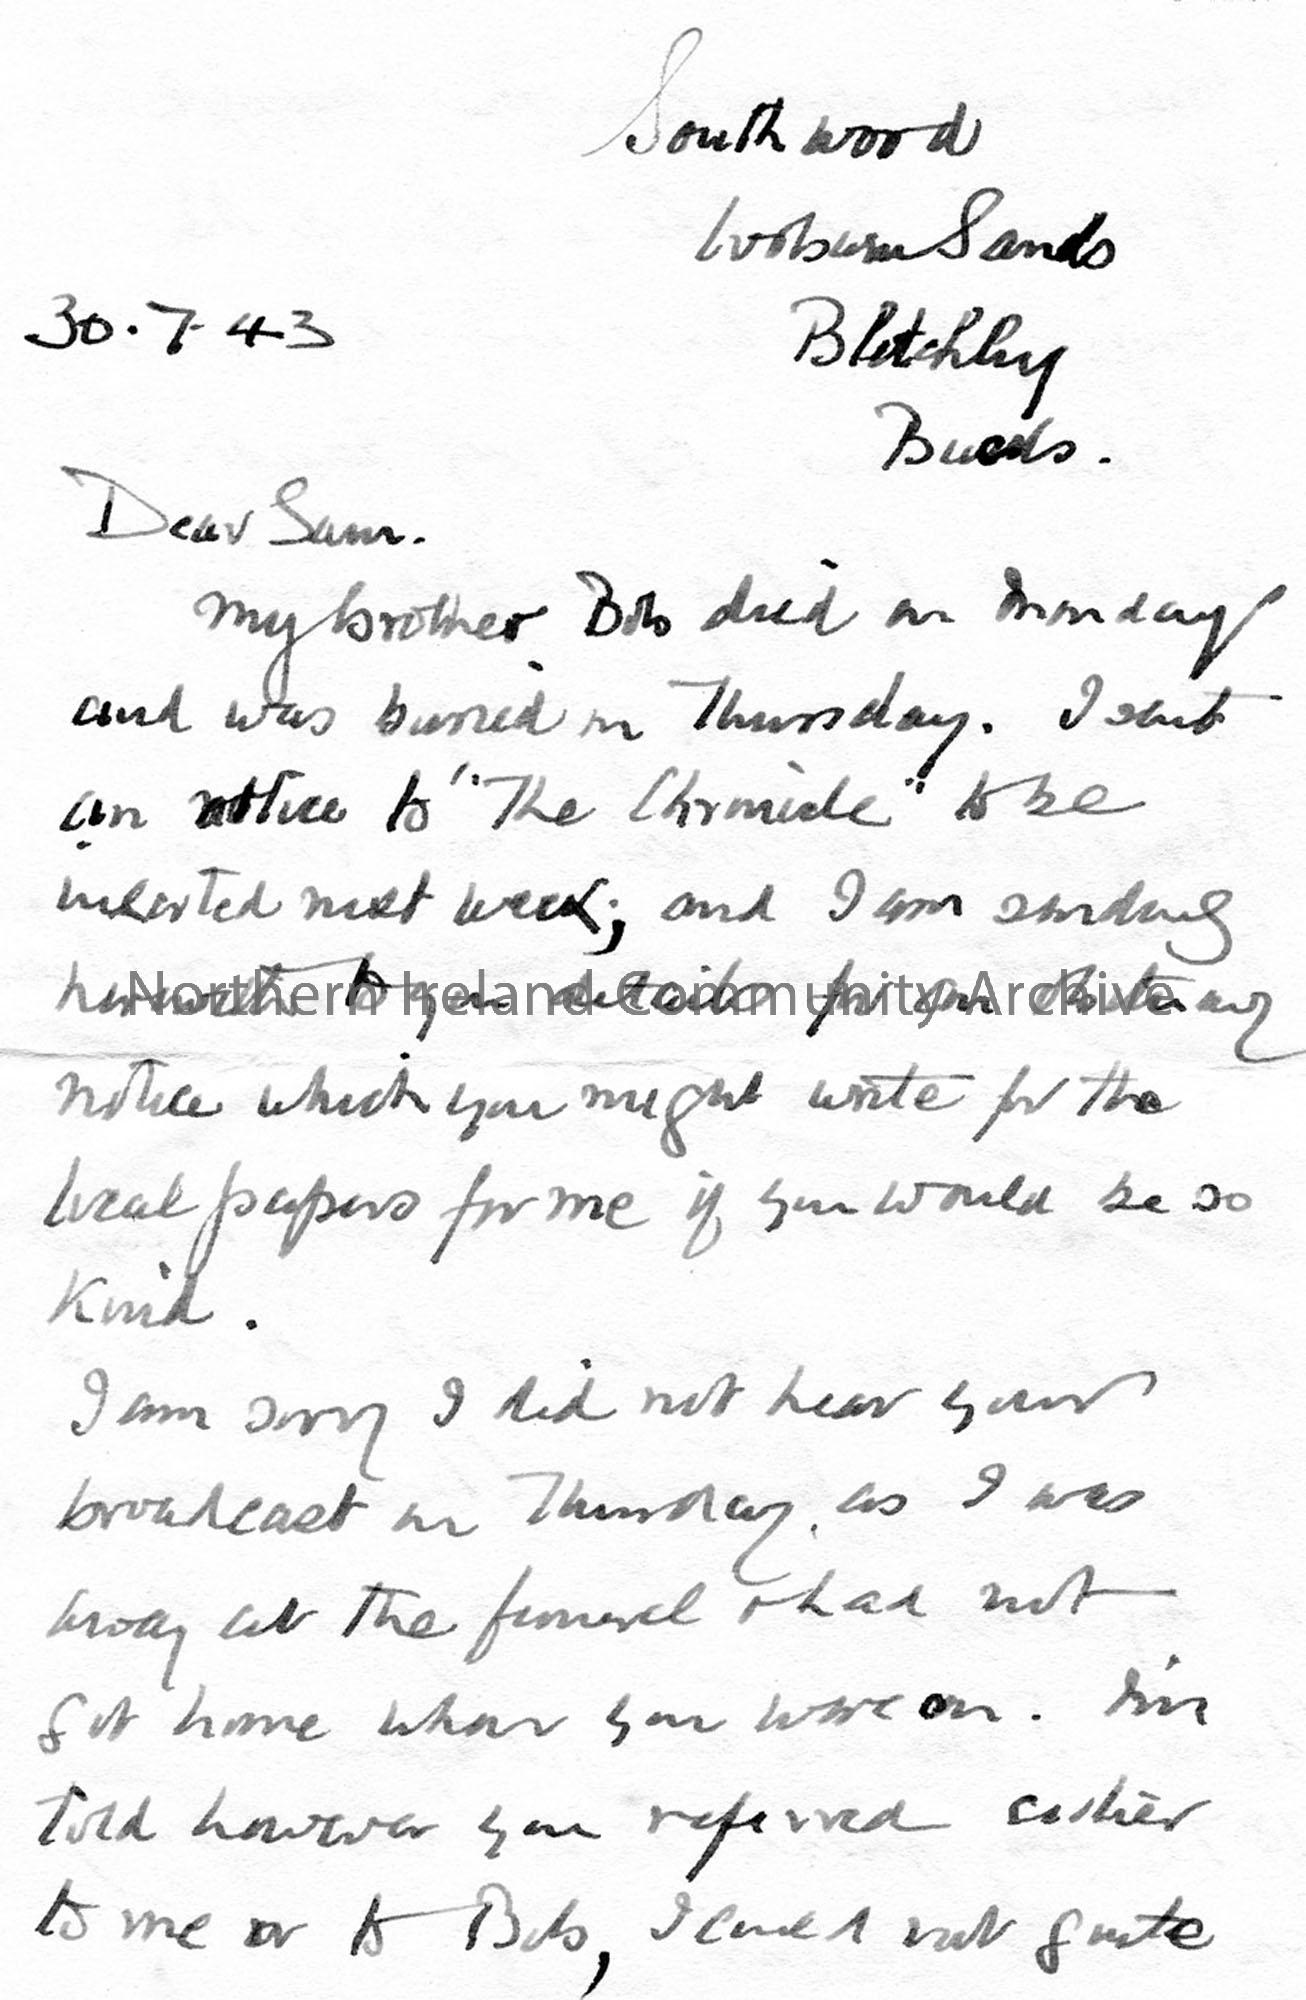 Southwood
Woburn Sands
Bletchley
30.7.43
Bucks.
Dear Sam.
My brother Bob died on Monday
and was buried on Thursday. I sent
an notice to "The Chronicle" to be
inserted next week; and I am sending
herewith to you details for an obituary
Northern Ireland Community Archive
notice which you might write for the
local papers for me if you would be so
kind.
I am sorry I did not hear your
broadcast on Thursday, as I was
away at the funeral & had not
got home when you were on. I'm
told however you referred either
to me or to Bob, I could not quite